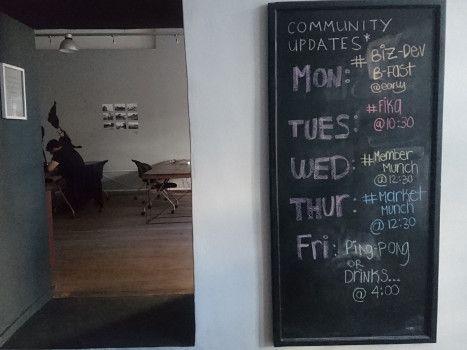 COMMUNITY
UPDATES*
MON: # BIZ-DEV
B-FAST
@early
TUES: #Fika
@10:30
WED: #Member
Munch
@ 12:30
THUR: #Market
Munch
@ 12:30
Fri: Ping-Pong
OR
DRINKS...
@ 4:00